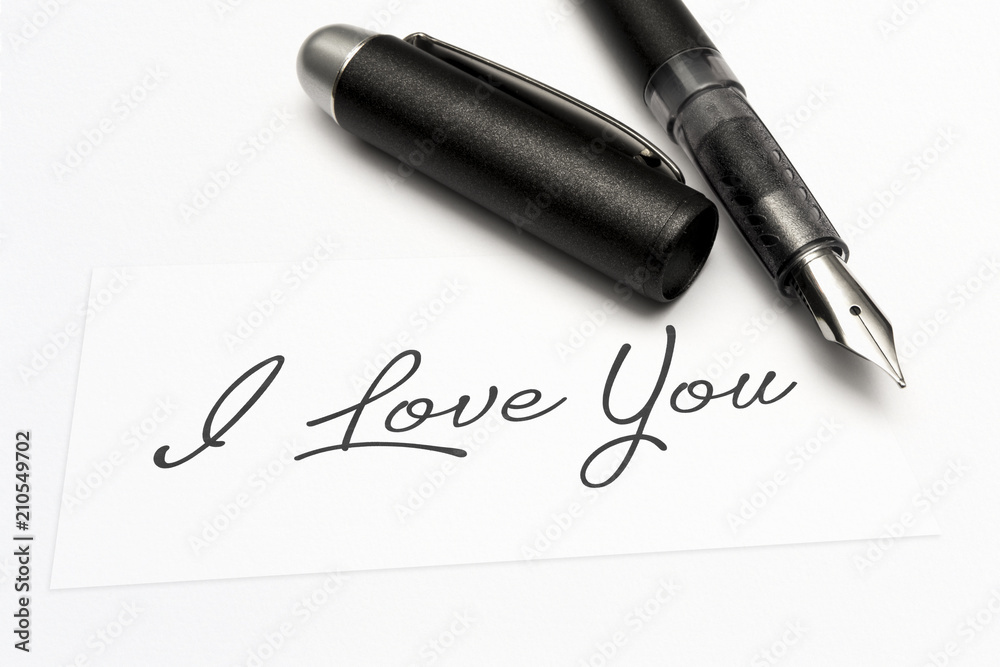 I Love You
Adobe Stock | #210549702